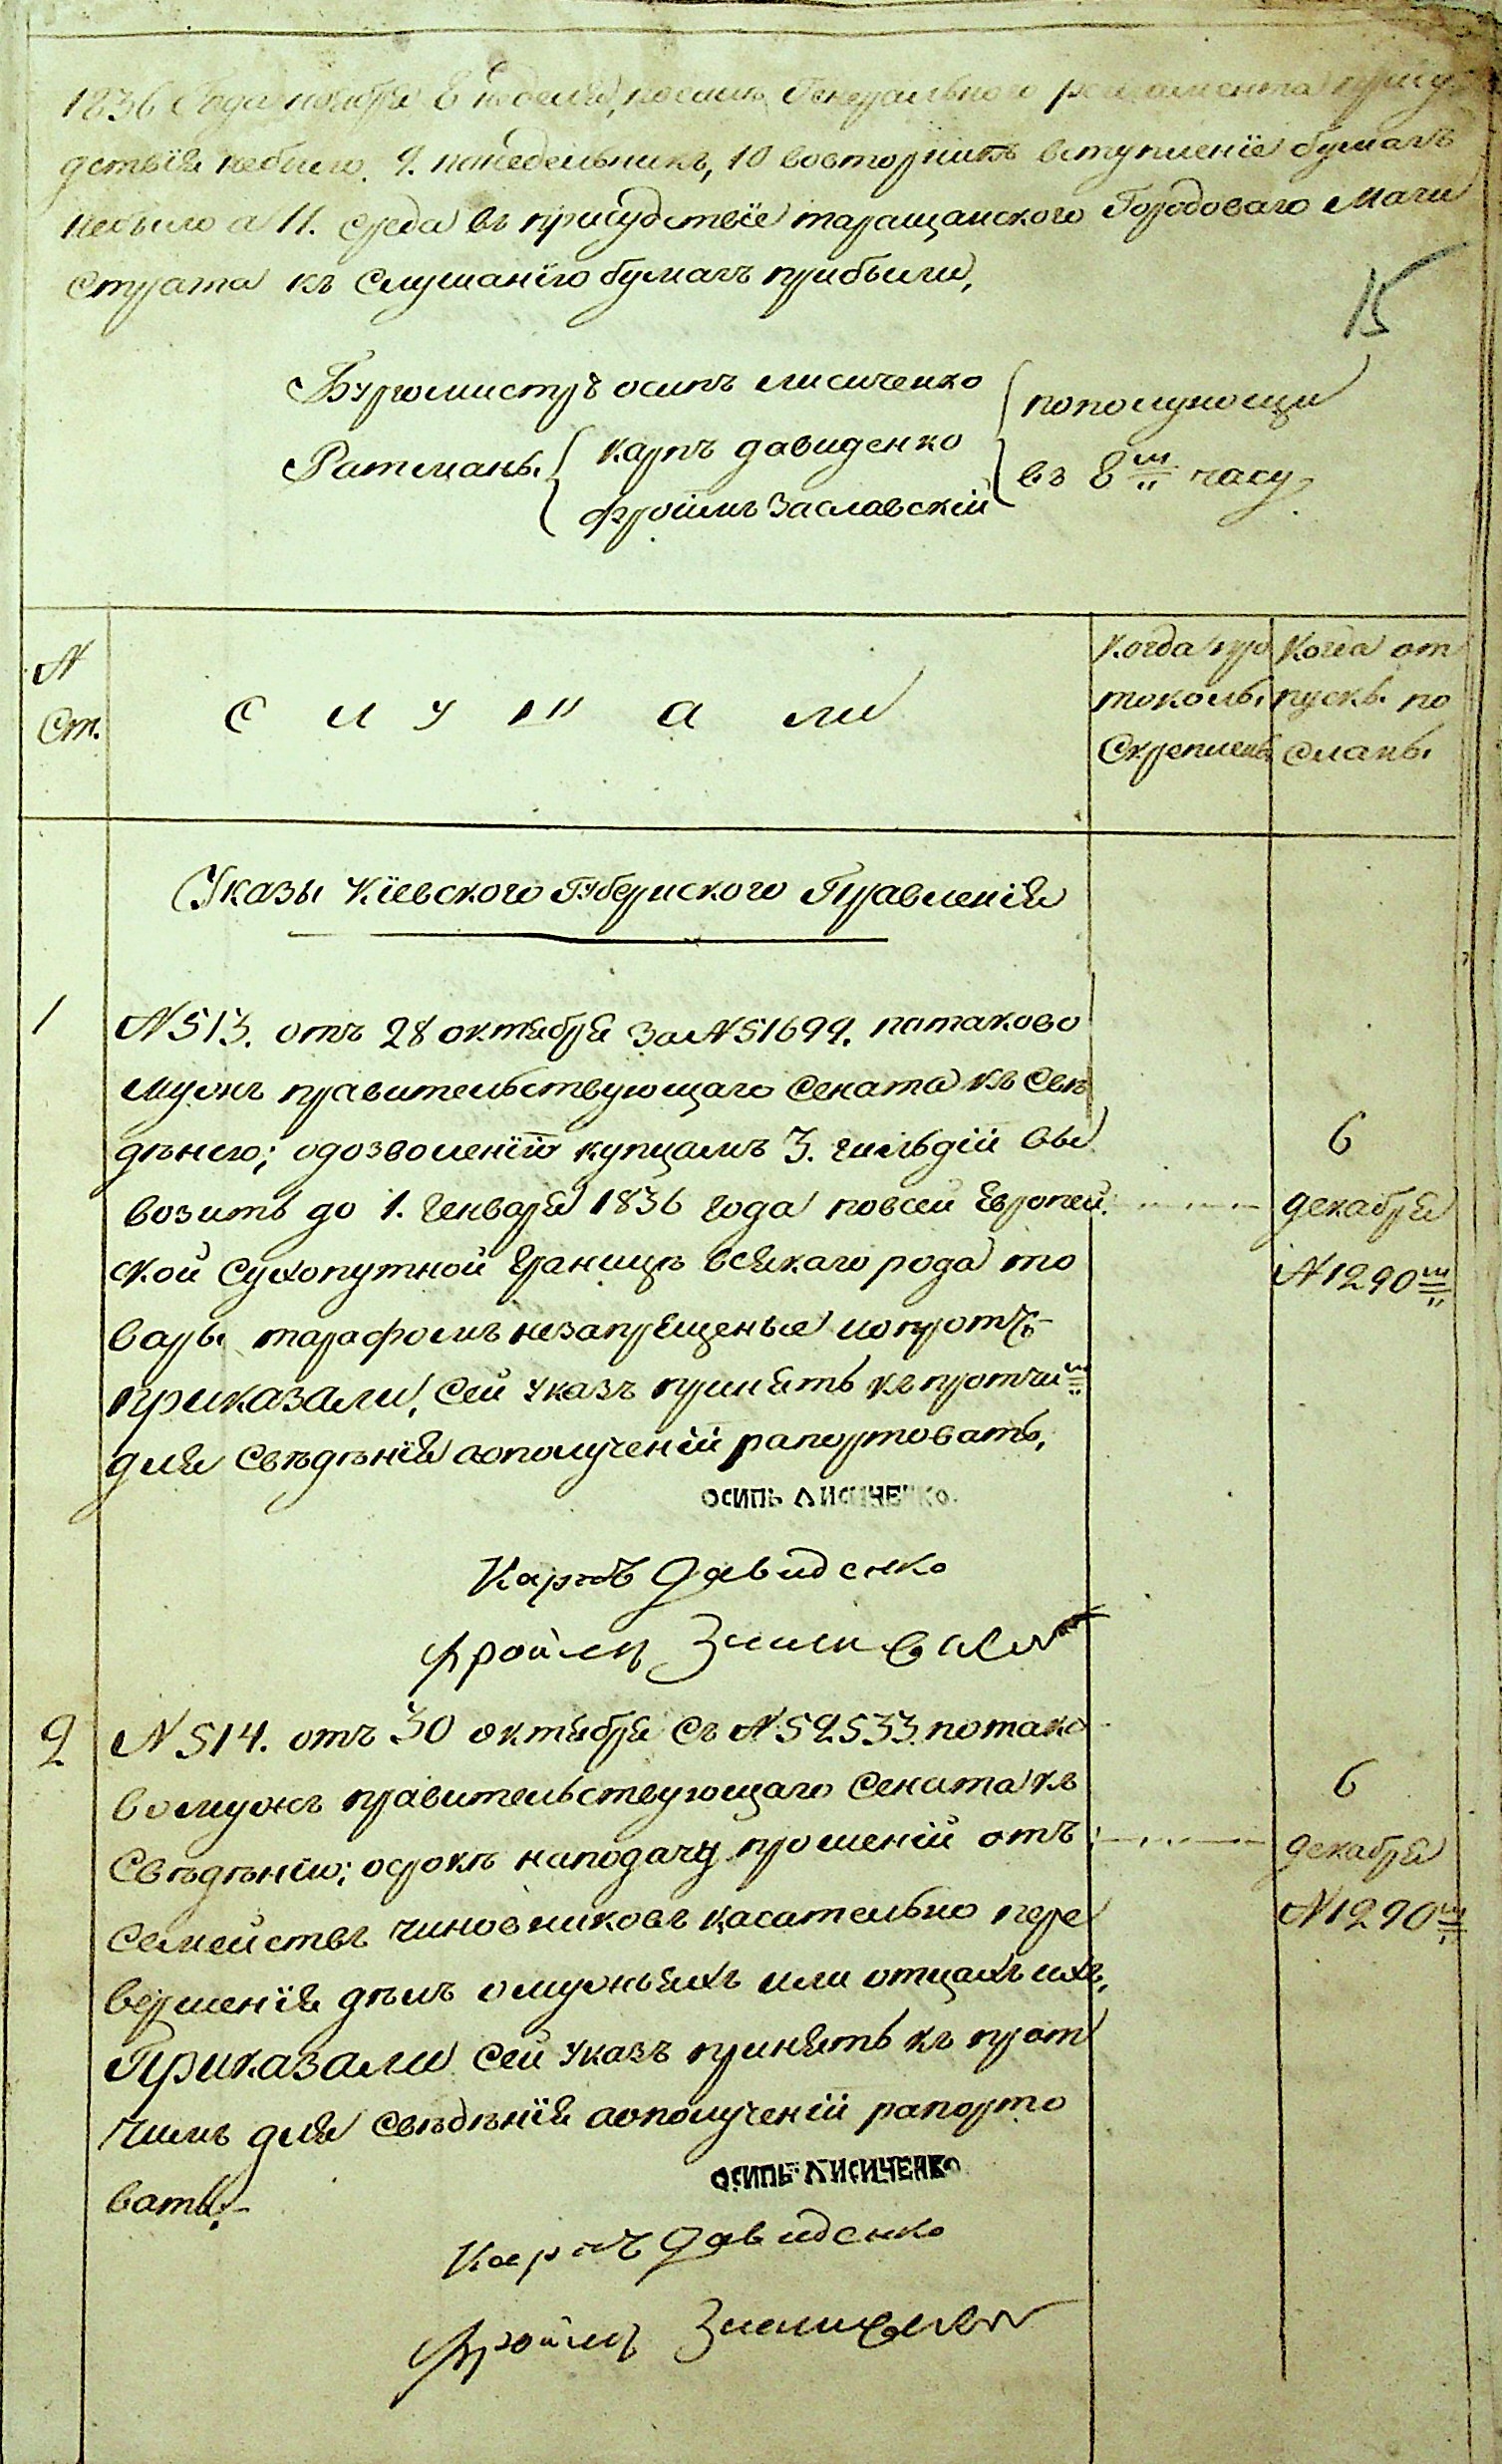 1836 Года ноября 8 неделя, посилѣ Генеральнои регламента прису
дствія небыло. 9. понедельникъ, 10 вовторникъ вступленіе бумагъ
небыло а 11. среда въ присудствіе таращанского Городоваго Маги
страта къ слушанію бумагъ прибыли,
15
Бургомистръ осипъ лисиченко
пополуночи
Ратманы
карпъ давиденко
въ 8ш часу
фроимъ Заславскій
N
Ст.
с л у ш а ли
Когда про
токолы
Скреплены
Когда от
пускы по
сланы
Указы Кіевского Губернского Правленія
1
N 513. отъ 28 октября за N 51699. потаково
муожъ правительствующаго сената къ свѣ
дѣнію; одозволеніи купцамъ 3. гильдіи вы
возить до 1. Генваря 1836 года повсей Европей
ской сухопутной Границѣ всякаго рода то
вары тарафомъ незапрещеные ипротч
приказали, сей указъ принять къ протчим
для свѣдѣнія аополученіи рапортовать,
6
декабря
N 1290ш
осипь лисиченко.
Карпъ Давиденко
фроимъ
2
N 514. отъ 30 октября съ N 52533. потако
вомуожъ правительствующаго Сената къ
Свѣдѣнію; осрокѣ наподачу прошеній отъ
Семействъ чиновниковъ касательно пере
вершенія дѣлъ омужьяхъ или отцахъ ихъ,
Приказали сей указъ принять къ прот
чимъ для свѣдѣнія аополученіи рапорто
вать,
6
декабря
N 1290ш
осипь лисиченко
Карпъ Давиденко
фроимъ